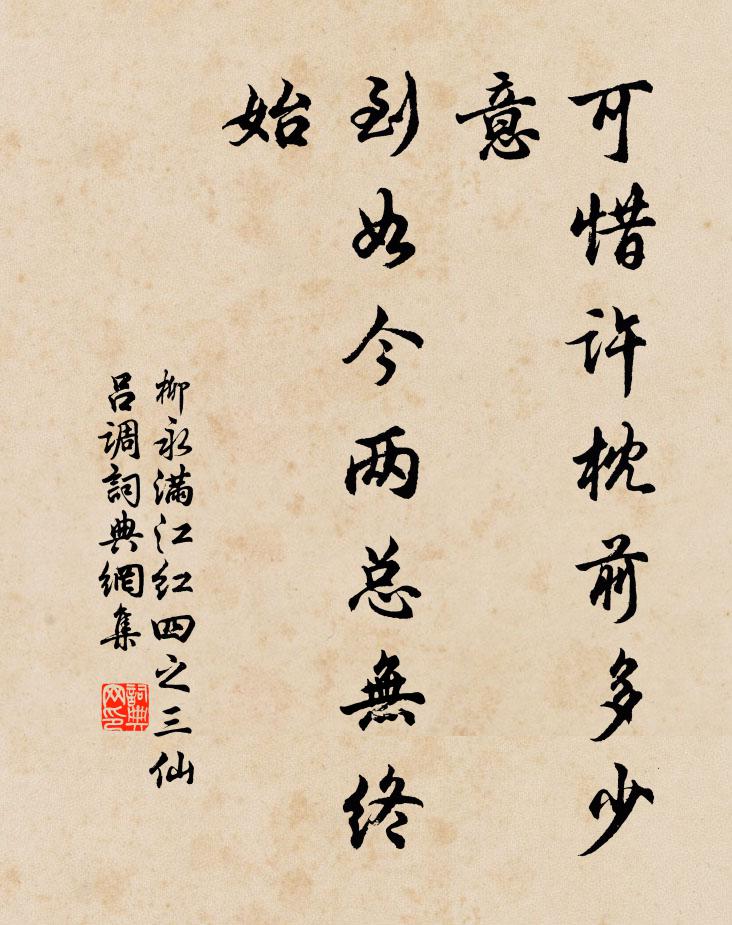 可惜许枕前多少
意
到如今两总無终
始
柳永满江红四之三仙
吕调詞典網集
詞典网印